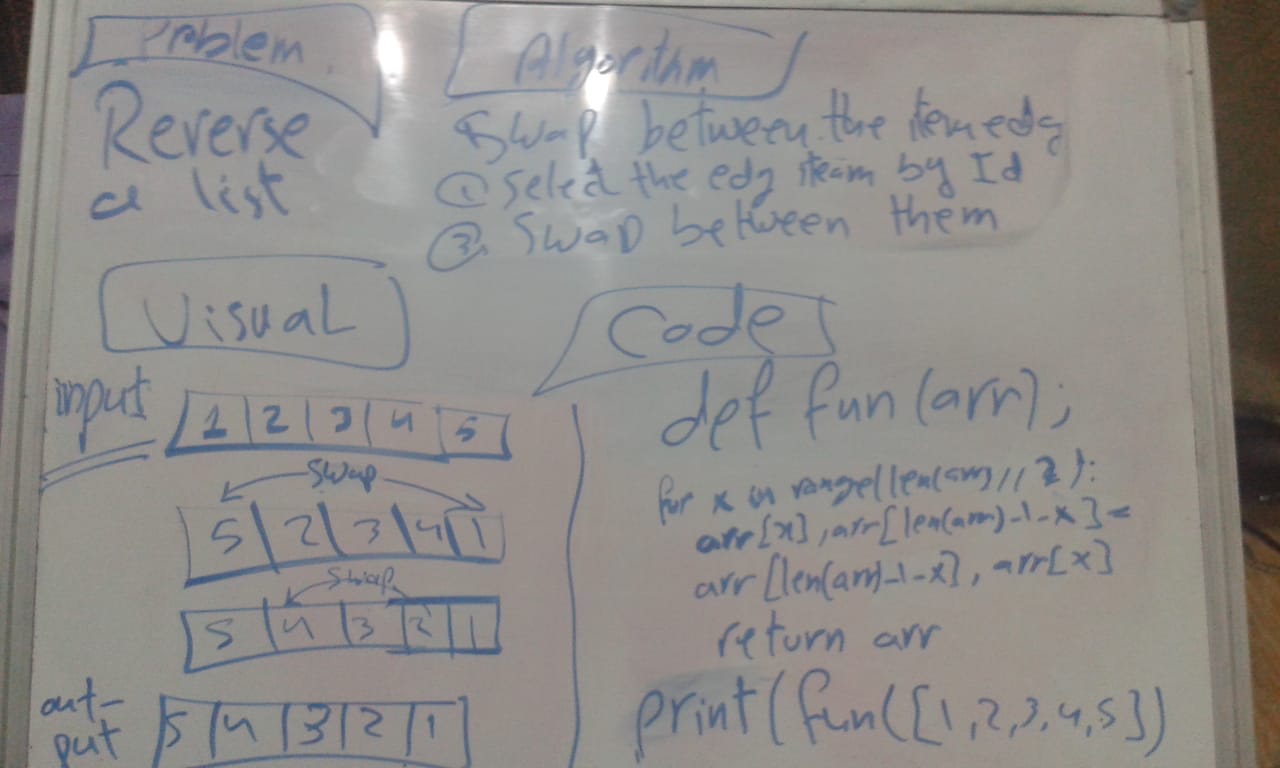 Problem
Reverse
a list
Algorithm
Swap between the item edg
① Select the edg iteam by Id
② Swap between them
Visual
input
1 2 3 4 5
Swap
5 2 3 4 1
Swap
5 4 3 2 1
out-
put
5 4 3 2 1
Code
def fun(arr);
for x in range(len(arr)//2):
arr[x],arr[len(arr)-1-x]=
arr[len(arr)-1-x], arr[x]
return arr
print(fun([1,2,3,4,5])